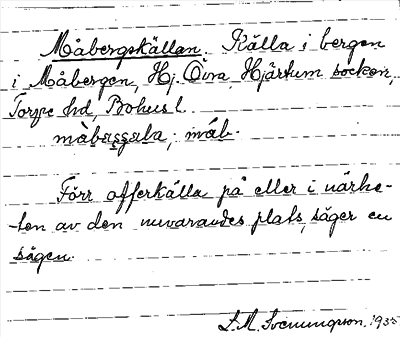 Måbergskällan. Källa i bergen
i Måbergen, Hj. Öira, Hjärtum socken,
Torpe hd, Bohusl.
måb. 
Förr offerkälla på eller i närhe-
-ten av den nuvarandes plats, säger en
sägen.
S.M. Svenungsson. 1935